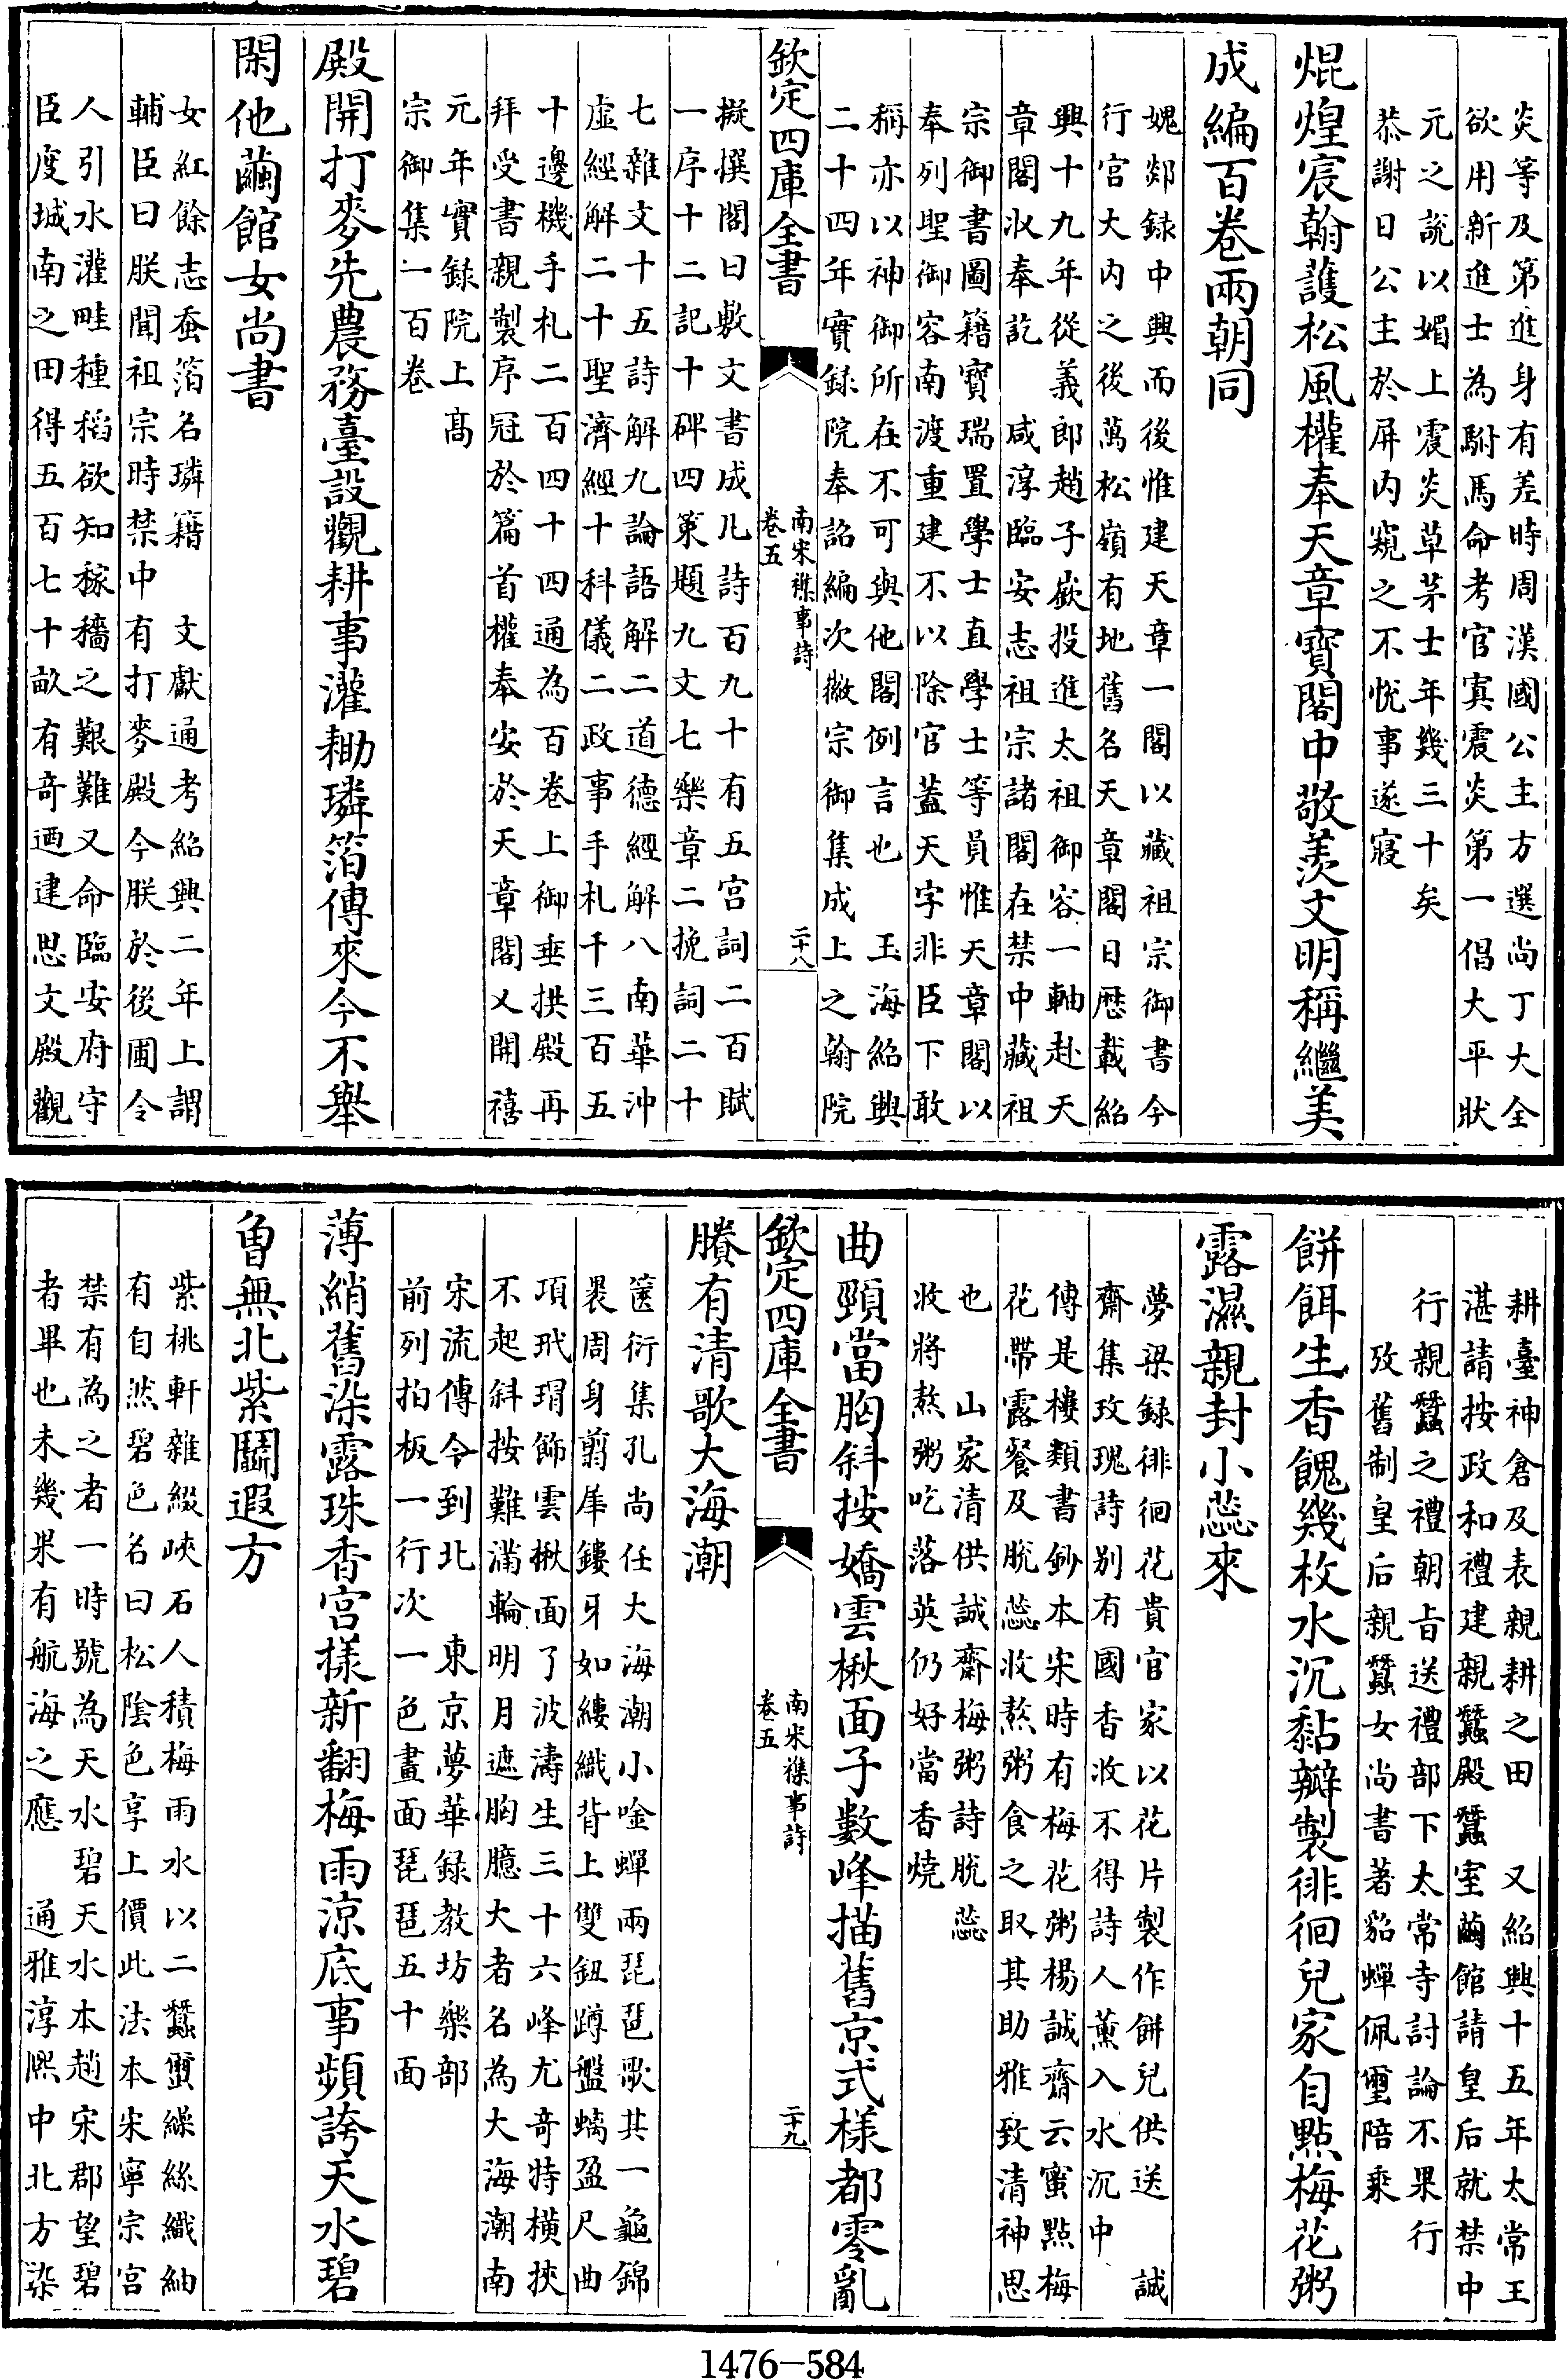 炎等及第進身有差時周漢國公主方選尚丁大全
欲用新進士為駙馬命考官寘震炎第一倡大平狀
元之說以媚上震炎草茅士年幾三十矣
恭謝日公主於屏内窺之不悅事遂寢
焜煌宸翰䕶松風權奉天章寳閣中敬羨文明稱繼美
成編百卷兩朝同
媿郯録中興而後惟建天章一閣以藏祖宗御書今
行宫大内之後萬松嶺有地舊名天章閣日厯載紹
興十九年從義郎趙子嶔投進太祖御容一軸赴天
章閣收奉訖 咸淳臨安志祖宗諸閣在禁中藏祖
宗御書圖籍寳瑞置學士直學士等員惟天章閣以
奉列聖御容南渡重建不以除官葢天字非臣下敢
稱亦以神御所在不可與他閣例言也 玉海紹興
二十四年實録院奉詔編次徽宗御集成上之翰院
欽定四庫全書
南宋襍事詩
卷五
二十八
擬撰閣曰敷文書成凡詩百九十有五宫詞二百賦
一序十二記十碑四策題九文七樂章二挽詞二十
七雜文十五詩解九論語解二道德經解八南華沖
虛經解二十聖濟經十科儀二政事手札千三百五
十邊機手札二百四十四通為百卷上御垂拱殿再
拜受書親製序冠於篇首權奉安於天章閣乂開禧
元年實録院上髙
宗御集一百卷
殿開打麥先農務臺設觀耕事灌耡璘箔傳來今不舉
閑他繭館女尚書
女紅餘志蚕箔名璘籍 文獻通考紹興二年上謂
輔臣曰朕聞祖宗時禁中有打麥殿今朕於後圃令
人引水灌畦種稻欲知稼穡之艱難又命臨安府守
臣度城南之田得五百七十畝有奇迺建思文殿觀
耕臺神倉及表親耕之田 又紹興十五年太常王
湛請按政和禮建親蠶殿蠶室繭館請皇后就禁中
行親蠶之禮朝㫖送禮部下太常寺討論不果行
攷舊制皇后親蠶女尚書著貂蟬佩璽陪乘
餅餌生香餽幾枚水沉黏瓣製徘徊兒家自點梅花粥
露濕親封小蕊來
夢梁録徘徊花貴官家以花片製作餅兒供送 誠
齋集玫瑰詩别有國香收不得詩人薰入水沉中
傳是樓類書鈔本宋時有梅花粥楊誠齋云蜜點梅
花帶露餐及脫蕊收熬粥食之取其助雅致清神思
也 山家清供誠齋梅粥詩脫蕊
收將熬粥吃落英仍好當香燒
曲頸當胸斜按嬌雲楸面子數峰描舊京式樣都零亂
欽定四庫全書
南宋襍事詩
卷五
二十九
賸有清歌大海潮
篋衍集孔尚任大海潮小唫蟬兩琵琶歌其一龜錦
褁周身剪犀鏤牙如縷織背上雙鈕蹲盤螭盈尺曲
項玳瑁飾雲楸面了波濤生三十六峰尤奇特横挾
不起斜按難滿輪明月遮胸臆大者名為大海潮南
宋流傳今到北 東京夢華録教坊樂部
前列拍板一行次一色畫面琵琶五十面
薄綃舊染露珠香宫樣新翻梅雨涼底事頻誇天水碧
曽無北紫鬬遐方
紫桃軒雜綴峽石人積梅雨水以二蠶璽繰絲織紬
有自然碧色名曰松陰色享上價此法本宋寧宗宫
禁有為之者一時號為天水碧天水本趙宋郡望碧
者畢也未幾果有航海之應 通雅淳熙中北方染
1476—584